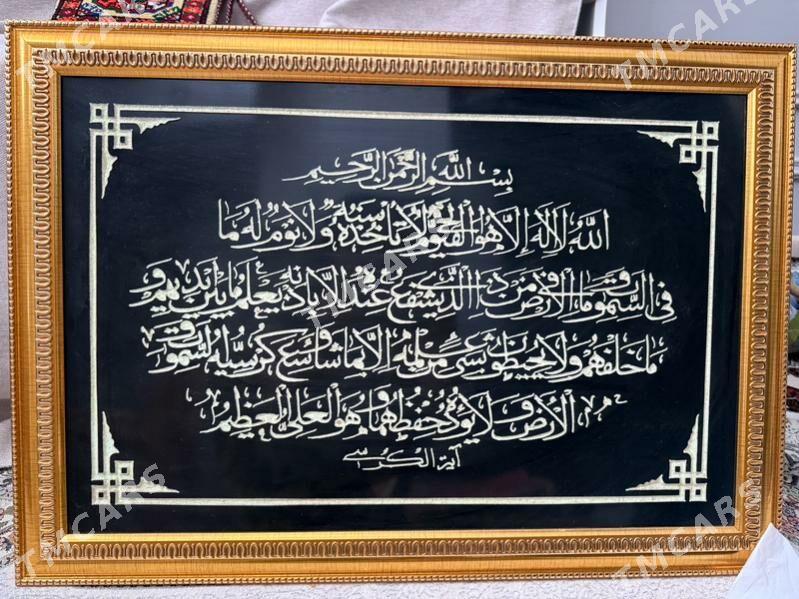 بسم الله الرحمن الرحيم
الله لا اله الا هو الحي القيوم لا تأخذه سنة ولا نوم له ما
في السموات وما في الأرض من ذا الذي يشفع عنده الا بإذنه يعلم ما بين أيديهم و
ما خلفهم ولا يحيطون بشيء من علمه الا بما شاء وسع كرسيه السموات و
الأرض ولا يؤده حفظهما وهو العلي العظيم
آية الكرسي
TMCARS
TMCARS
TMCARS
TMCARS
TMCARS
TMCARS
TMCARS